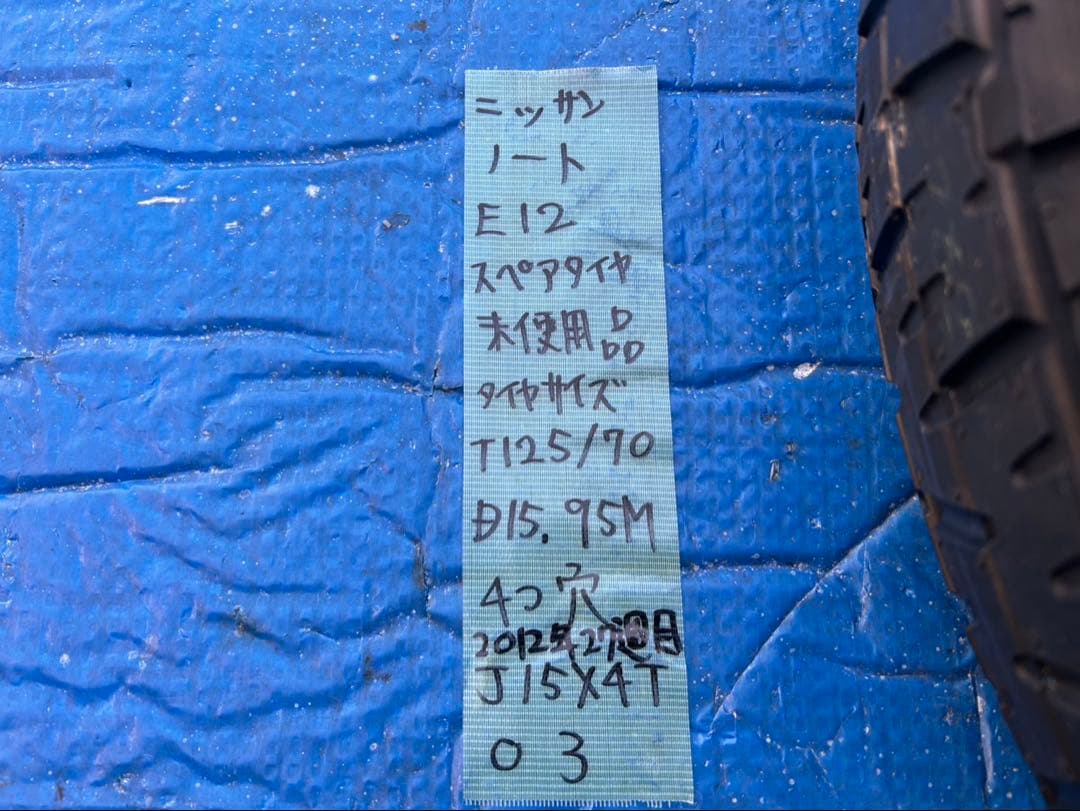 ニッサン
ノート
E12
スペアタイヤ
未使用品
タイヤサイズ
T125/70
D15.95M
4つ穴
2012年27週目
J15X4T
03